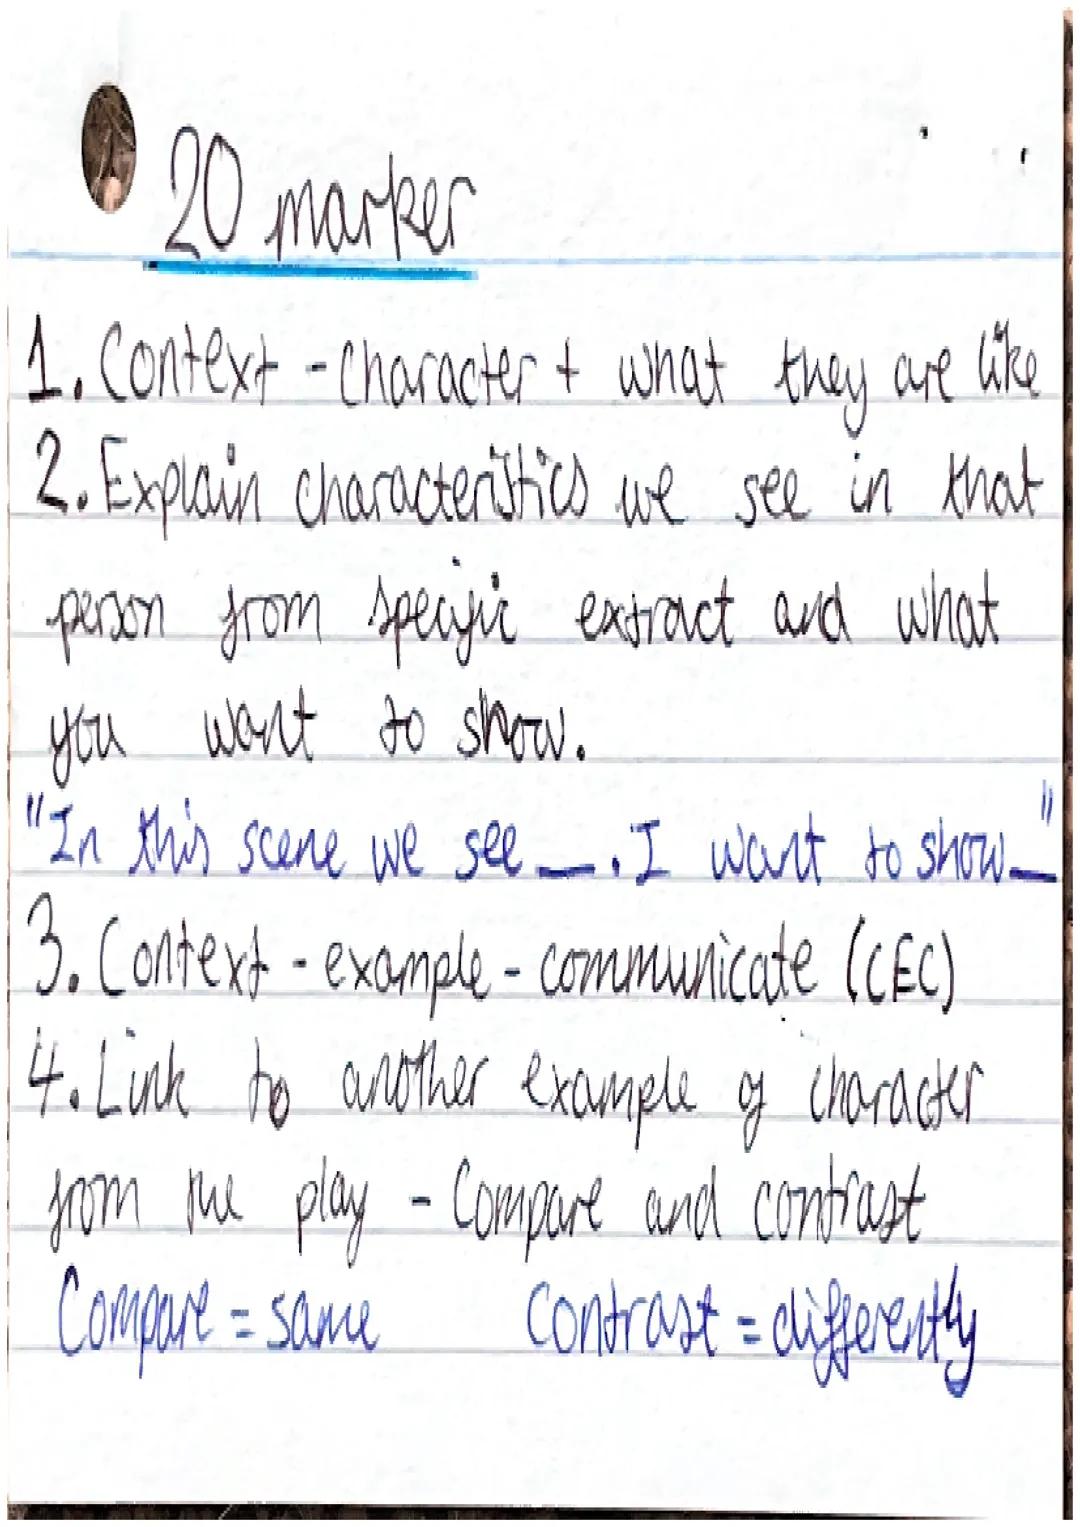 20 marker
1. Context - Character + what they are like
2. Explain characteristics we see in that
person from specific extract and what
you want to show.
"In this scene we see __. I want to show __"
3. Context - example - communicate (CEC)
4. Link to another example of character
from the play - Compare and contrast
Compare = same Contrast = differently